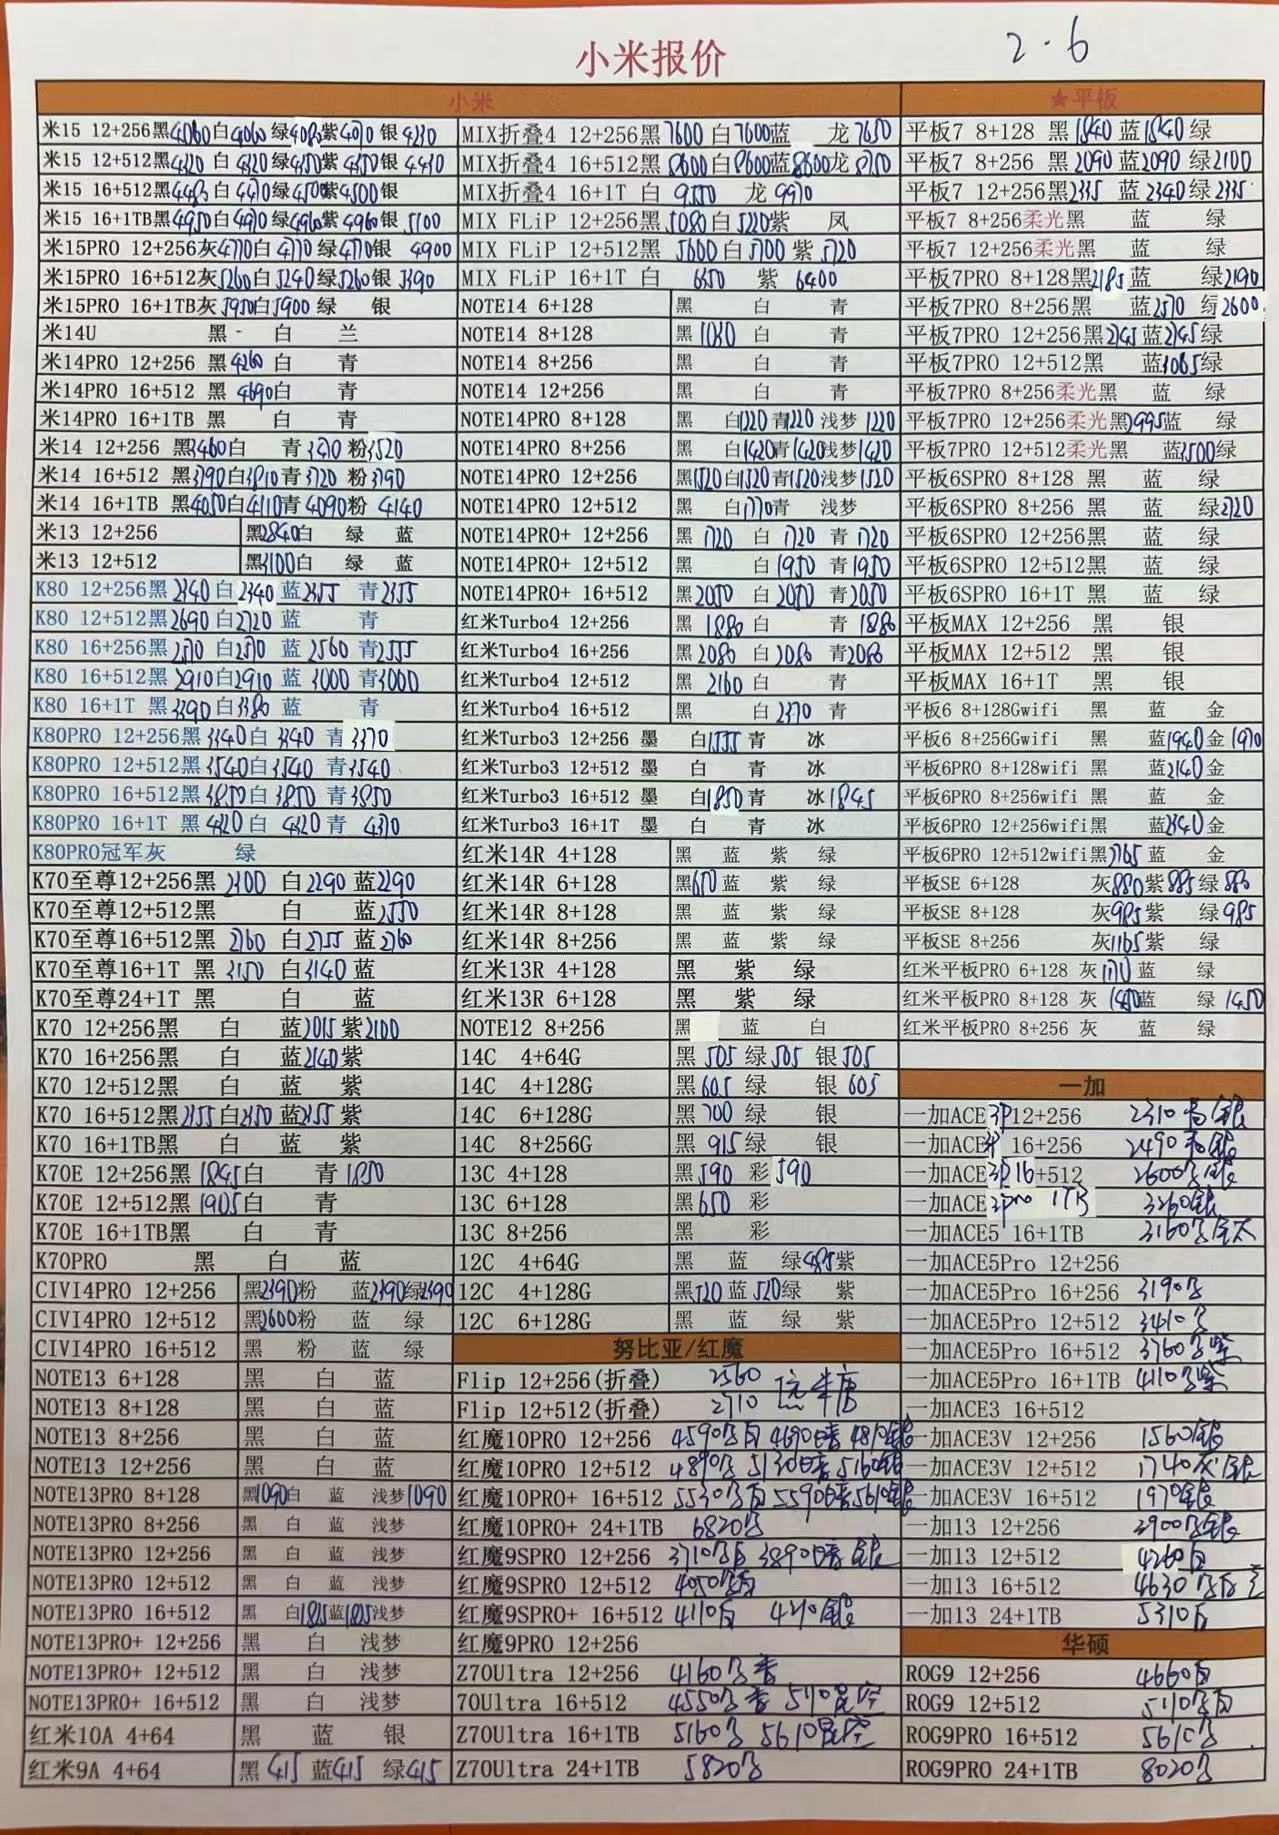 小米报价
2.6
小米
米15 12+256黑4060白4060 绿4080紫4070 银4230
米15 12+512黑4320 白4320绿4350紫4350银4410
米15 16+512黑 白4470绿4500紫4500银
米15 16+1TB黑4950白4970绿4960紫4960银5100
米15PRO 12+256灰4770白4770绿4770银 4900
米15PRO 16+512灰5260白5240绿5260银
米15PRO 16+1TB灰5950白5900 绿 银
米14U 黑 白 兰
米14PRO 12+256 黑4260 白 青
米14PRO 16+512 黑4690白 青
米14PRO 16+1TB 黑 白 青
米14 12+256 黑3460白 青 粉3520
米14 16+512 黑3790白3810青3720 粉3790
米14 16+1TB 黑4050白4110青4090粉 4140
米13 12+256 黑2840白 绿 蓝
米13 12+512 黑3100白 绿 蓝
K80 12+256黑2340白2340 蓝2355 青2355
K80 12+512黑2690白2720 蓝 青
K80 16+256黑 白 蓝2560 青2555
K80 16+512黑2910白2910 蓝 3000 青3000
K80 16+1T 黑3390白3380 蓝 青
K80PRO 12+256黑3340白 3340 青3370
K80PRO 12+512黑3540白3540 青3540
K80PRO 16+512黑3850白3850 青3850
K80PRO 16+1T 黑4320白 4320 青
K80PRO冠军灰 绿
K70至尊12+256黑 2300 白2290 蓝2290
K70至尊12+512黑 白 蓝2550
K70至尊16+512黑 2760 白2755 蓝2760
K70至尊16+1T 黑 3150 白3140蓝
K70至尊24+1T 黑 白 蓝
K70 12+256黑 白 蓝2015紫2100
K70 16+256黑 白 蓝2140紫
K70 12+512黑 白 蓝 紫
K70 16+512黑2155白2150 蓝2155紫
K70 16+1TB黑 白 蓝 紫
K70E 12+256黑 1845白 青1850
K70E 12+512黑1905白 青
K70E 16+1TB黑 白 青
K70PRO 黑 白 蓝
CIVI4PRO 12+256 黑2390粉 蓝2390绿2390
CIVI4PRO 12+512 黑2600粉 蓝 绿
CIVI4PRO 16+512 黑 粉 蓝 绿
NOTE13 6+128 黑 白 蓝
NOTE13 8+128 黑 白 蓝
NOTE13 8+256 黑 白 蓝
NOTE13 12+256 黑 白 蓝
NOTE13PRO 8+128 黑1090白 蓝 浅梦1090
NOTE13PRO 8+256 黑 白 蓝 浅梦
NOTE13PRO 12+256 黑 白 蓝 浅梦
NOTE13PRO 12+512 黑 白 蓝 浅梦
NOTE13PRO 16+512 黑 白 蓝 浅梦
NOTE13PRO+ 12+256 黑 白 浅梦
NOTE13PRO+ 12+512 黑 白 浅梦
NOTE13PRO+ 16+512 黑 白 浅梦
红米10A 4+64 黑 蓝 银
红米9A 4+64 黑 415 蓝415 绿415
MIX折叠4 12+256黑7600 白7600蓝 龙7650
MIX折叠4 16+512黑8600白8600蓝8600龙8750
MIX折叠4 16+1T 白 9550 龙 9970
MIX FLiP 12+256黑5080白5220紫 凤
MIX FLiP 12+512黑 5600白5700 紫5720
MIX FLiP 16+1T 白 紫 6400
NOTE14 6+128 黑 白 青
NOTE14 8+128 黑 1030 白 青
NOTE14 8+256 黑 白 青
NOTE14 12+256 黑 白 青
NOTE14PRO 8+128 黑 白1220青1220 浅梦 1220
NOTE14PRO 8+256 黑 白1420青1420浅梦1420
NOTE14PRO 12+256 黑1520白1520青1520浅梦1520
NOTE14PRO 12+512 黑 白1770青 浅梦
NOTE14PRO+ 12+256 黑 1720 白 1720 青 1720
NOTE14PRO+ 12+512 黑 白 1950 青1950
NOTE14PRO+ 16+512 黑2050 白 2050 青2050
红米Turbo4 12+256 黑 1880 白 青 1880
红米Turbo4 16+256 黑2080 白2080 青2080
红米Turbo4 12+512 黑 2160 白 青
红米Turbo4 16+512 黑 白 2370 青
红米Turbo3 12+256 墨 白1555 青 冰
红米Turbo3 12+512 墨 白 青 冰
红米Turbo3 16+512 墨 白1850 青 冰1845
红米Turbo3 16+1T 墨 白 青 冰
红米14R 4+128 黑 蓝 紫 绿
红米14R 6+128 黑650蓝 紫 绿
红米14R 8+128 黑 蓝 紫 绿
红米14R 8+256 黑 蓝 紫 绿
红米13R 4+128 黑 紫 绿
红米13R 6+128 黑 紫 绿
NOTE12 8+256 黑 蓝 白
14C 4+64G 黑 505 绿 505 银505
14C 4+128G 黑605 绿 银 605
14C 6+128G 黑 700 绿 银
14C 8+256G 黑 915 绿 银
13C 4+128 黑590 彩 590
13C 6+128 黑650 彩
13C 8+256 黑 彩
12C 4+64G 黑 蓝 绿485紫
12C 4+128G 黑520蓝520绿 紫
12C 6+128G 黑 蓝 绿 紫
努比亚/红魔
Flip 12+256(折叠) 2560
Flip 12+512(折叠) 2710
红魔10PRO 12+256 4590 4690暗 银
红魔10PRO 12+512 4890 5130暗 5160银
红魔10PRO+ 16+512 5530 5590暗5610银
红魔10PRO+ 24+1TB 6820
红魔9SPRO 12+256 3710 3890暗 银
红魔9SPRO 12+512 4050
红魔9SPRO+ 16+512 4110白 银
红魔9PRO 12+256
Z70Ultra 12+256 4160
70Ultra 16+512 4550 星空
Z70Ultra 16+1TB 5160 5610星空
Z70Ultra 24+1TB 5820
★平板
平板7 8+128 黑 1840 蓝1840 绿
平板7 8+256 黑 2090 蓝2090 绿2100
平板7 12+256黑2335 蓝 2340绿2335
平板7 8+256柔光黑 蓝 绿
平板7 12+256柔光黑 蓝 绿
平板7PRO 8+128黑2185 蓝 绿2190
平板7PRO 8+256黑 蓝2570 绿2600
平板7PRO 12+256黑2745蓝2745绿
平板7PRO 12+512黑 蓝3065绿
平板7PRO 8+256柔光黑 蓝 绿
平板7PRO 12+256柔光黑2995蓝 绿
平板7PRO 12+512柔光黑 蓝3500绿
平板6SPRO 8+128 黑 蓝 绿
平板6SPRO 8+256 黑 蓝 绿2720
平板6SPRO 12+256黑 蓝 绿
平板6SPRO 12+512黑 蓝 绿
平板6SPRO 16+1T 黑 蓝 绿
平板MAX 12+256 黑 银
平板MAX 12+512 黑 银
平板MAX 16+1T 黑 银
平板6 8+128Gwifi 黑 蓝 金
平板6 8+256Gwifi 黑 蓝1940金 1970
平板6PRO 8+128wifi 黑 蓝2140金
平板6PRO 8+256wifi 黑 蓝 金
平板6PRO 12+256wifi黑 蓝2340金
平板6PRO 12+512wifi黑2765 蓝 金
平板SE 6+128 灰880紫885绿880
平板SE 8+128 灰985紫 绿985
平板SE 8+256 灰1165紫 绿
红米平板PRO 6+128 灰 蓝 绿
红米平板PRO 8+128 灰 1450蓝 绿 1450
红米平板PRO 8+256 灰 蓝 绿
一加
一加ACE3P12+256 2310 银
一加ACE 16+256 2490 银
一加ACE3P16+512 2600 银
一加ACE3pro 1TB 3260银
一加ACE5 16+1TB 3160
一加ACE5Pro 12+256
一加ACE5Pro 16+256 3190
一加ACE5Pro 12+512 3410
一加ACE5Pro 16+512 3760 紫
一加ACE5Pro 16+1TB 4110 紫
一加ACE3 16+512
一加ACE3V 12+256 1560银
一加ACE3V 12+512 1740灰 银
一加ACE3V 16+512 1970银
一加13 12+256 3900
一加13 12+512 4260白
一加13 16+512 4630
一加13 24+1TB 5310白
华硕
ROG9 12+256 4660白
ROG9 12+512
ROG9PRO 16+512 5610
ROG9PRO 24+1TB 8020